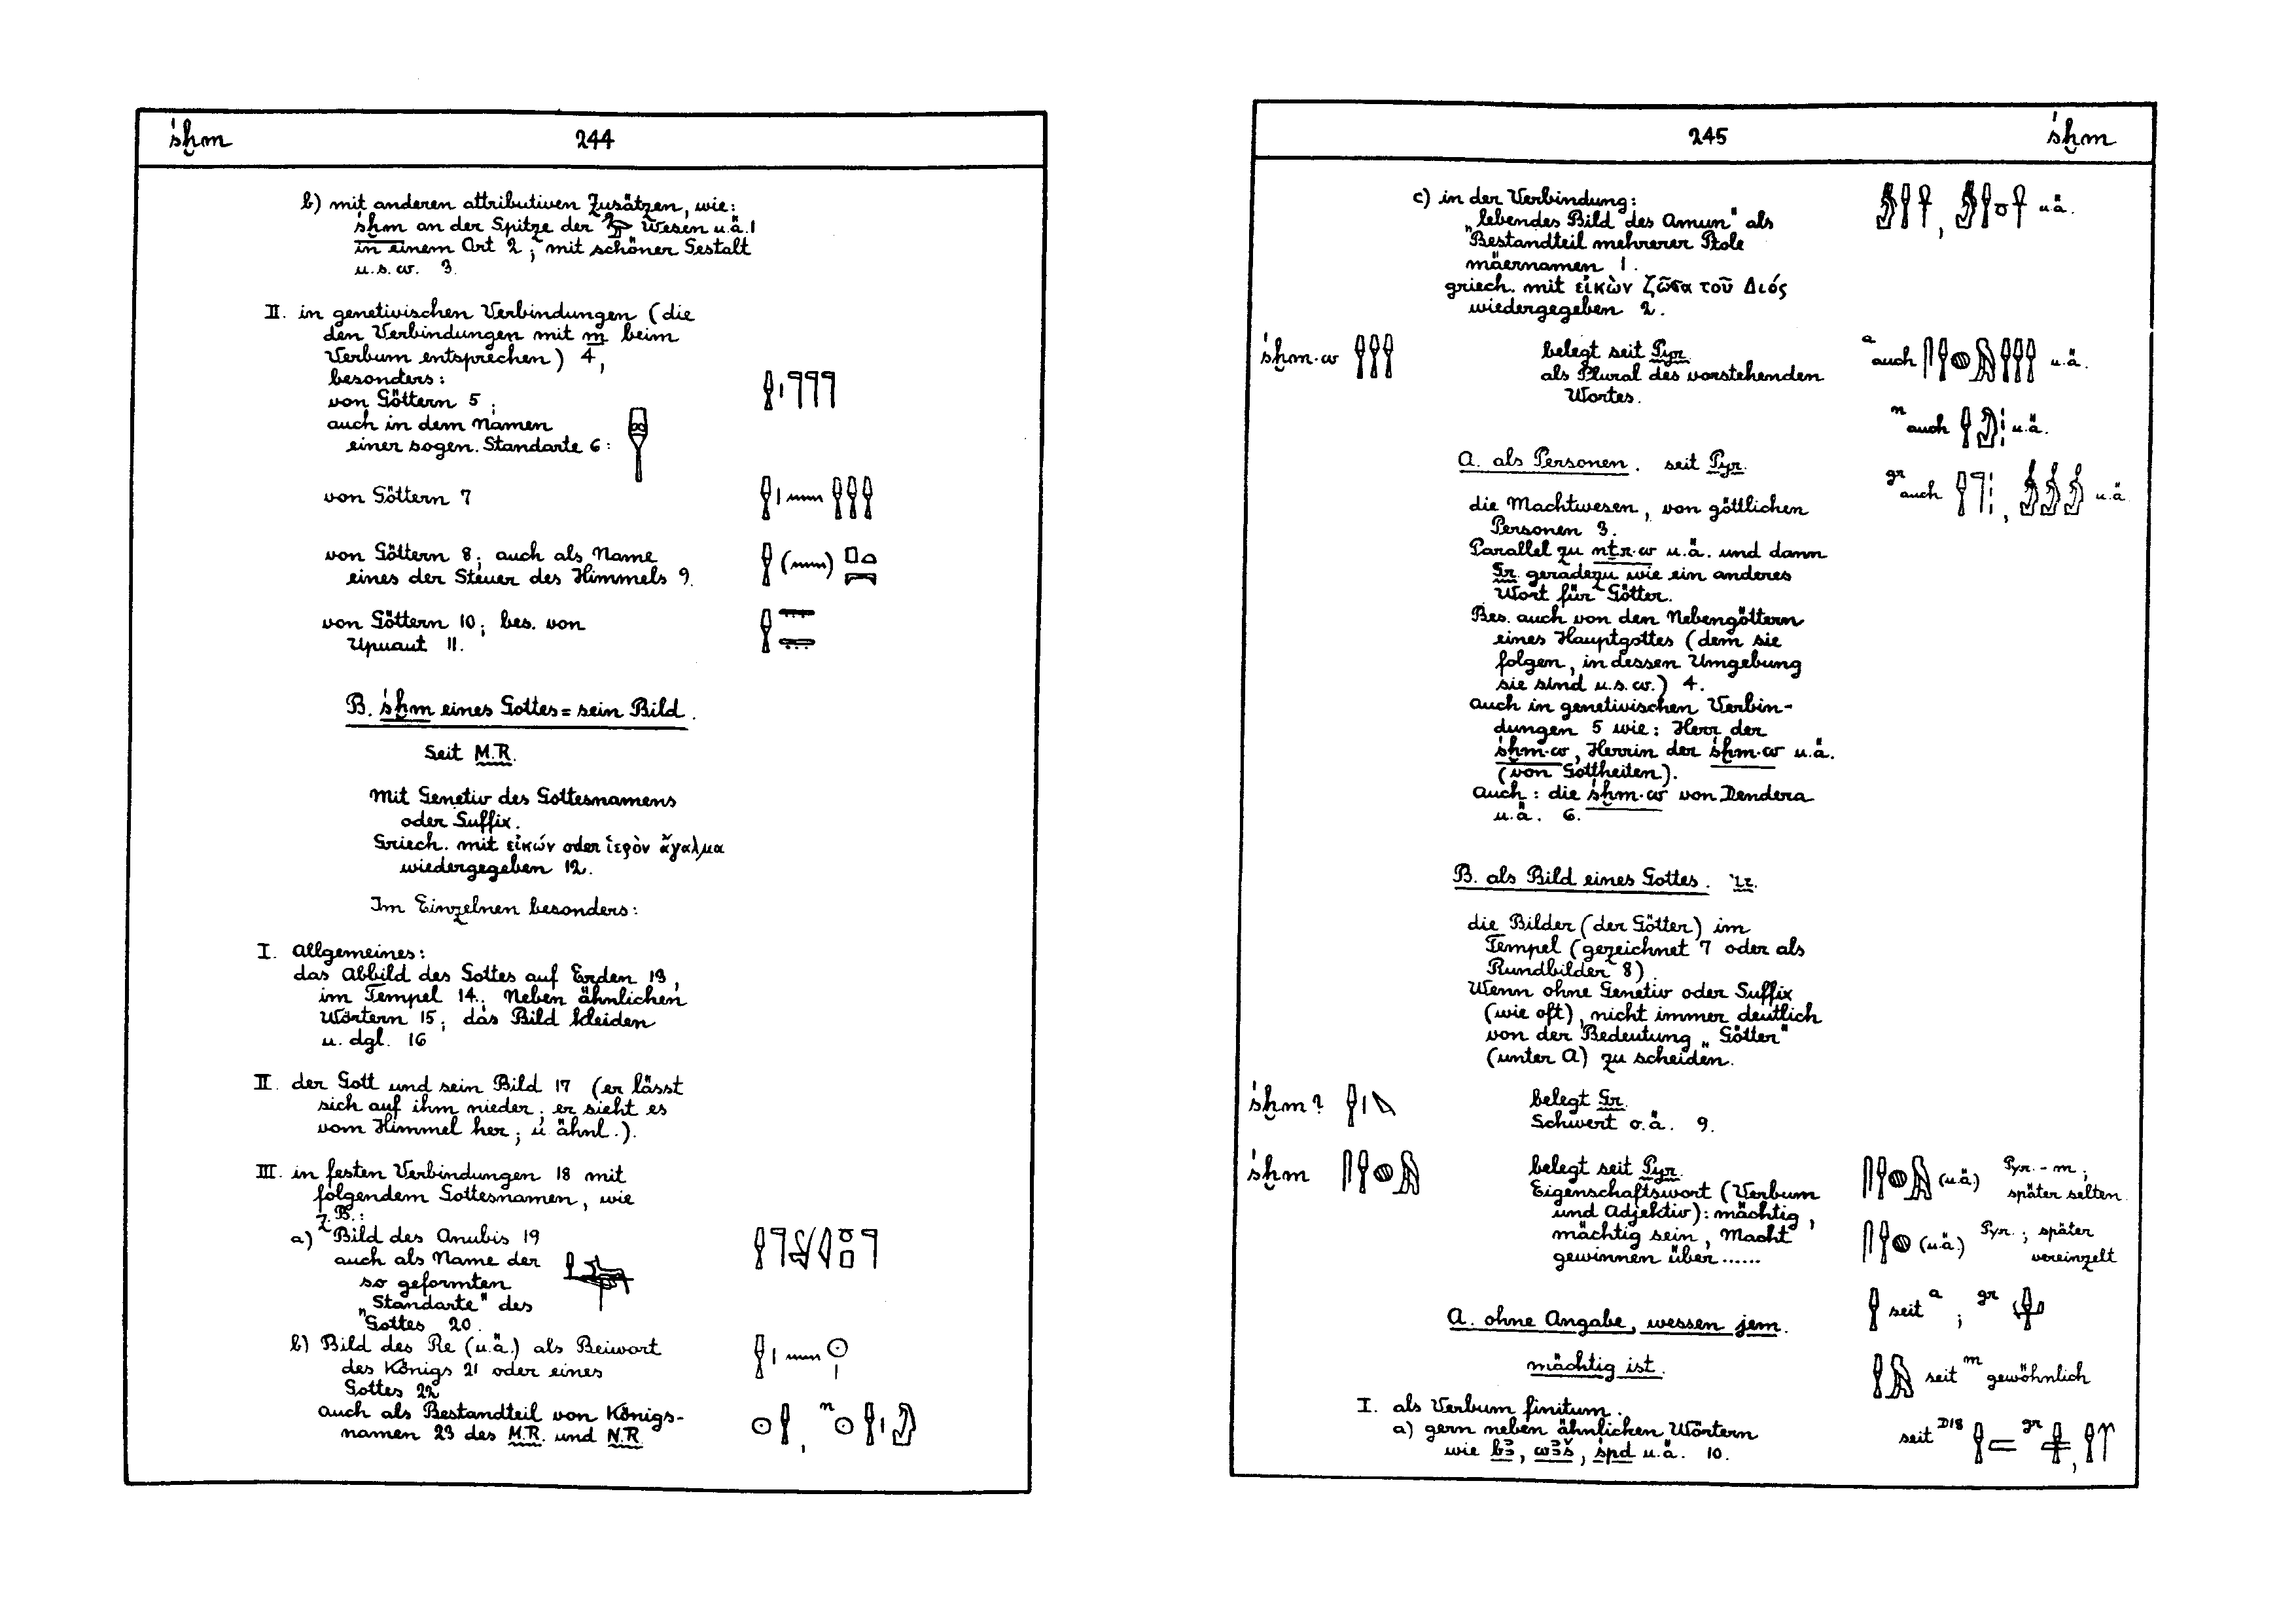 śḫm 244
b) mit anderen attributiven Zusätzen, wie:
śḫm an der Spitze der Wesen u.ä. 1
in einem Ort 2; mit schöner Gestalt
u.s.w. 3.
II. in genetivischen Verbindungen (die
den Verbindungen mit m beim
Verbum entsprechen) 4,
besonders:
von Göttern 5;
auch in dem Namen
einer sogen. Standarte 6:
von Göttern 7
von Göttern 8; auch als Name
eines der Steuer des Himmels 9.
von Göttern 10; bes. von
Upuaut 11.
B. śḫm eines Gottes = sein Bild.
Seit M.R.
Mit Genetiv des Gottesnamens
oder Suffix.
Griech. mit εἰκών oder ἱερὸν ἄγαλμα
wiedergegeben 12.
Im Einzelnen besonders:
I. Allgemeines:
das Abbild des Gottes auf Erden 13,
im Tempel 14; Neben ähnlichen
Wörtern 15; das Bild kleiden
u. dgl. 16
II. der Gott und sein Bild 17 (er lässt
sich auf ihm nieder; er sieht es
vom Himmel her; u ähnl.).
III. in festen Verbindungen 18 mit
folgendem Gottesnamen, wie
z.B.:
a) Bild des Anubis 19
auch als Name der
so geformten
„Standarte" des
Gottes 20.
b) Bild des Re (u.ä.) als Beiwort
des Königs 21 oder eines
Gottes 22
auch als Bestandteil von Königs-
namen 23 des M.R. und N.R.
245 śḫm
c) in der Verbindung: u.ä.
„lebendes Bild des Amun" als
Bestandteil mehrerer Ptole
mäernamen 1.
griech. mit εἰκὼν ζῶσα τοῦ Διός
wiedergegeben 2.
śḫm·w belegt seit Pyr. a auch u.ä.
als Plural des vorstehenden
Wortes.
n auch u.ä.
A. als Personen. seit Pyr.
gr auch u.ä.
die Machtwesen, von göttlichen
Personen 3.
Parallel zu nṯr·w u.ä. und dann
Gr. geradezu wie ein anderes
Wort für Götter.
Bes. auch von den Nebengöttern
eines Hauptgottes (dem sie
folgen, in dessen Umgebung
sie sind u.s.w.) 4.
Auch in genetivischen Verbin-
dungen 5 wie: Herr der
śḫm·w, Herrin der śḫm·w u.ä.
(von Gottheiten).
Auch: die śḫm·w von Dendera
u.ä. 6.
B. als Bild eines Gottes.
die Bilder (der Götter) im
Tempel (gezeichnet 7 oder als
Rundbilder 8)
Wenn ohne Genetiv oder Suffix
(wie oft), nicht immer deutlich
von der Bedeutung „Götter"
(unter A) zu scheiden.
śḫm? belegt Gr.
Schwert o.ä. 9.
śḫm belegt seit Pyr. (u.ä.) Pyr. - m;
Eigenschaftswort (Verbum später selten.
und Adjektiv): mächtig,
mächtig sein, Macht (u.ä.) Pyr.; später
gewinnen über...... vereinzelt
seit a; gr
A. ohne Angabe, wessen jem.
mächtig ist.
seit m gewöhnlich
I. als Verbum finitum.
a) gern neben ähnlichen Wörtern seit D18 gr ,
wie bꜣ, wꜣš, śpd u.ä. 10.